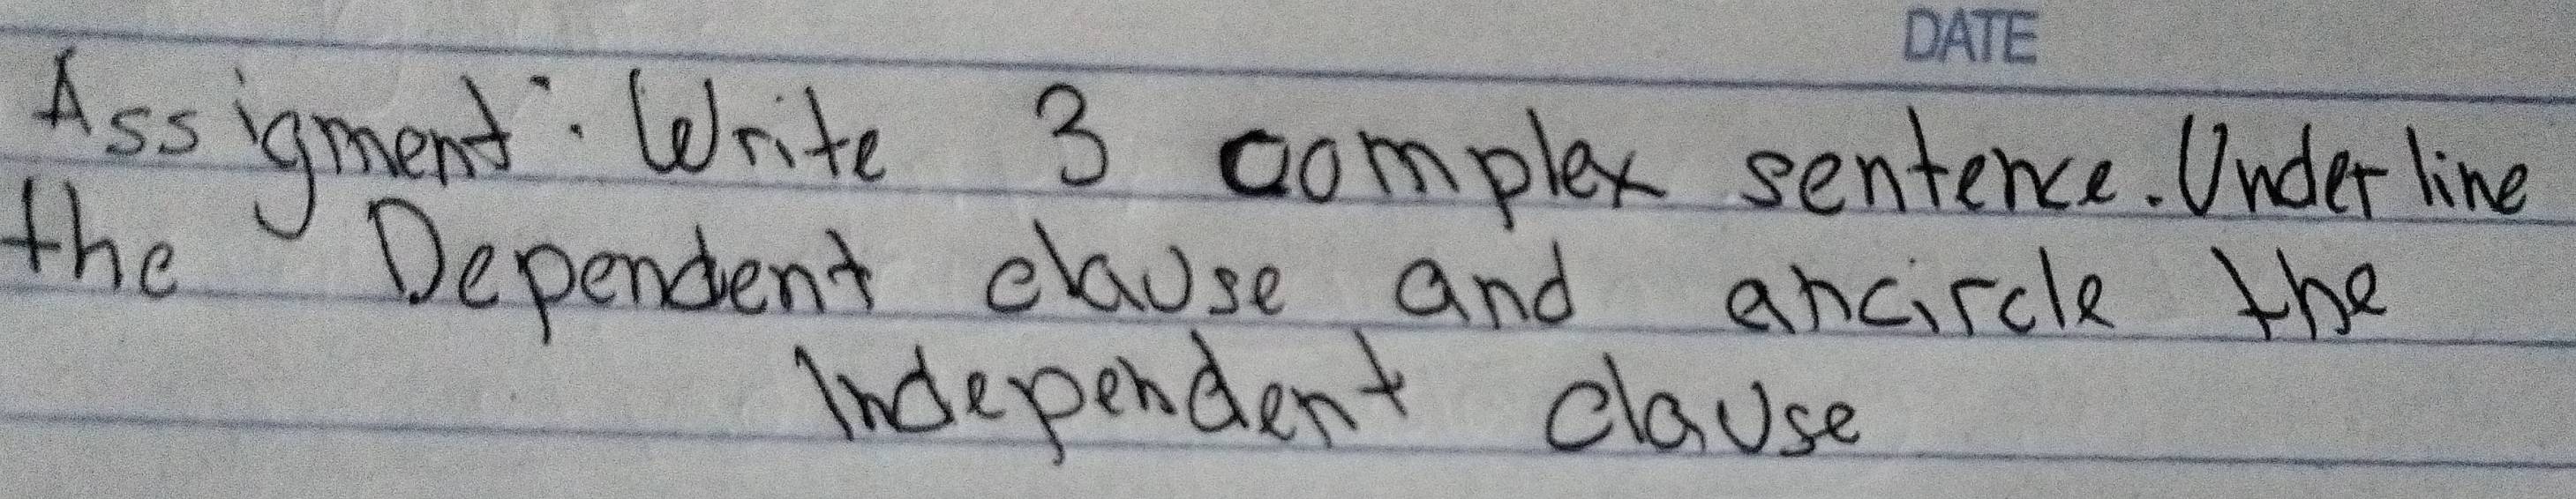 DATE
Assigment: Write 3 complex sentence. Underline
the Dependent clause and ancircle the
Independent clause